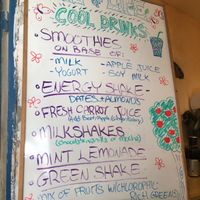 COOL DRINKS
• SMOOTHIES
ON BASE OF:
- MILK - APPLE JUICE
- YOGURT - SOY MILK
• ENERGY SHAKE -
DATES + ALMONDS
• FRESH CARROT JUICE
• MILKSHAKES
• MINT LEMONADE
• GREEN SHAKE -
MIX OF FRUITS W/CHLOROPHIL-
RICH GREENS